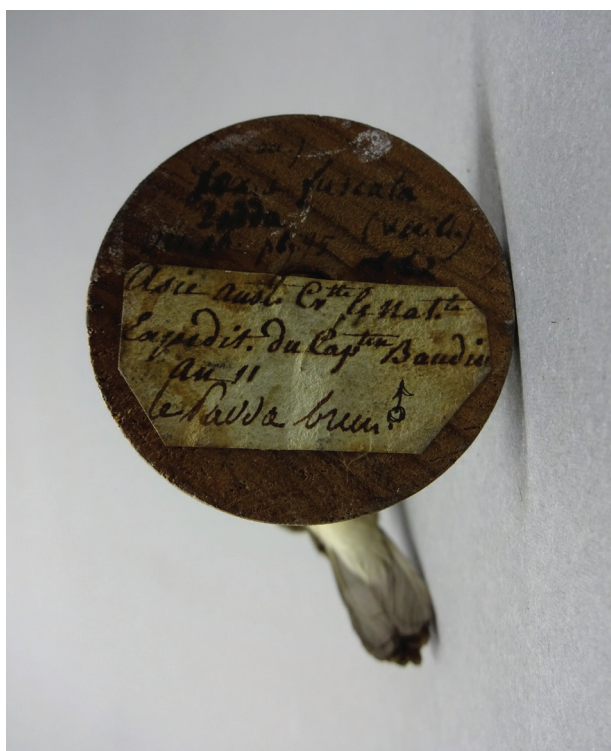 Loxia fuscata
Padda (Vieill.)
pl. 45
Asie aust. C^tte G^ Nat.^te
Expédit. du Cap^ten Baudin
an 11
le Padda brun. ♂